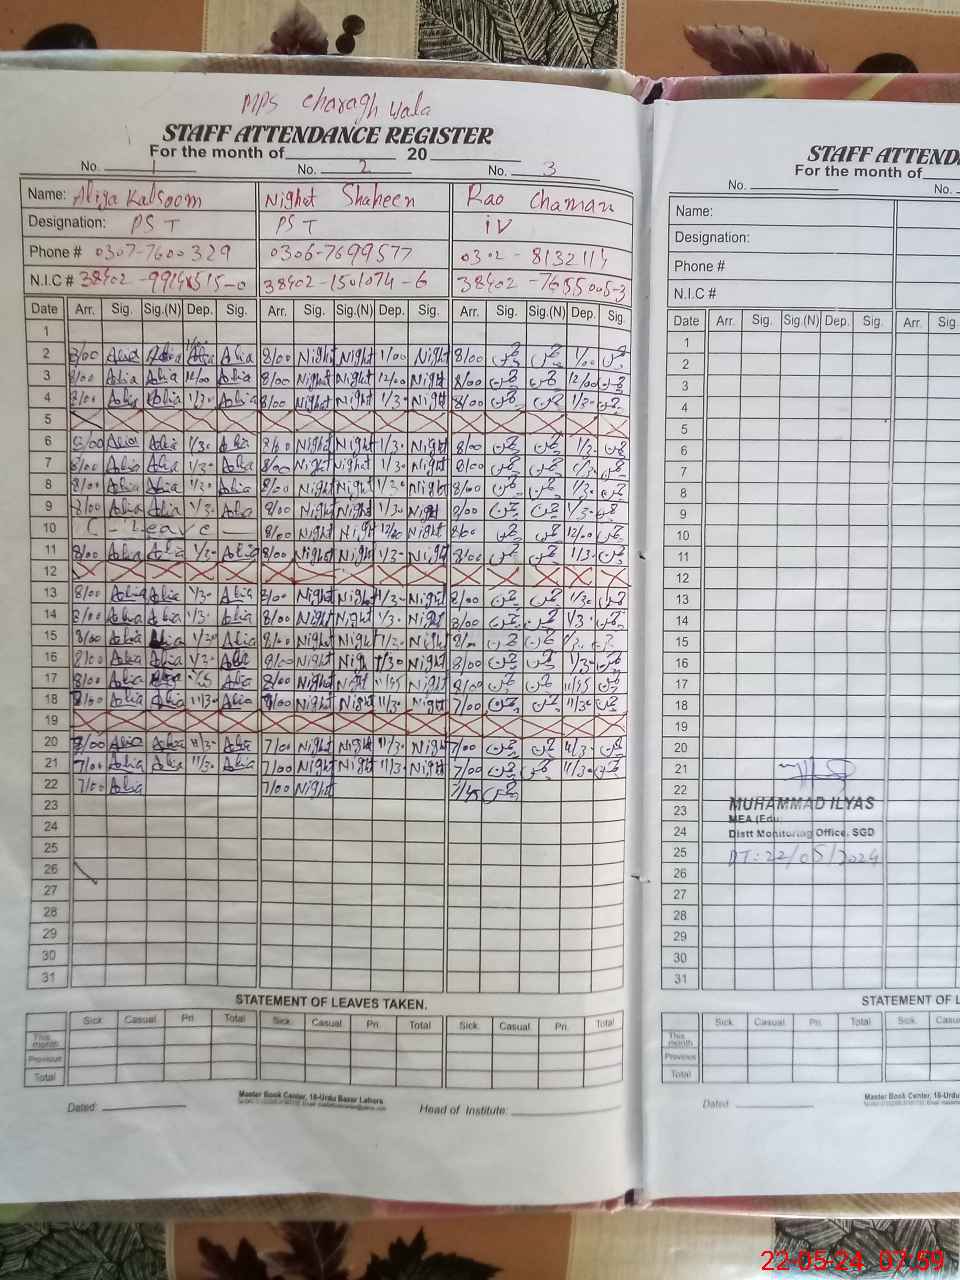 MPS Charagh wala
STAFF ATTENDANCE REGISTER
For the month of 20
No. 1 No. 2 No. 3
Name: Aliya Kalsoom Night Shaheen Rao Chaman
Designation: PST PST iV
Phone # 0307-7600329 0306-7699577 0302-8132114
N.I.C # 38402- 38402-1501074-6 38402-7655005-3
Date Arr. Sig. Sig.(N) Dep. Sig. Arr. Sig. Sig.(N) Dep. Sig. Arr. Sig. Sig.(N) Dep. Sig.
1
2 8/00 Alia Alia Alia Alia 8/00 Night Night 1/00 Night 8/00 چمن چمن 1/00 چمن
3 8/00 Alia Alia 12/00 Alia 8/00 Night Night 12/00 Night 8/00 چمن چمن 12/00 چمن
4 8/00 Alia Alia 1/30 Alia 8/00 Night Night 1/30 Night 8/00 چمن چمن 1/30 چمن
5
6 8/00 Alia Alia 1/30 Alia 8/00 Night Night 1/30 Night 8/00 چمن چمن 1/30 چمن
7 8/00 Alia Alia 1/30 Alia 8/00 Night Night 1/30 Night 8/00 چمن چمن 1/30 چمن
8 8/00 Alia Alia 1/30 Alia 8/00 Night Night 1/30 Night 8/00 چمن چمن 1/30 چمن
9 8/00 Alia Alia 1/30 Alia 8/00 Night Night 1/30 Night 8/00 چمن چمن 1/30 چمن
10 C - Leave - 8/00 Night Night 12/00 Night 8/00 چمن چمن 12/00 چمن
11 8/00 Alia Alia 1/30 Alia 8/00 Night Night 1/30 Night 8/00 چمن چمن 1/30 چمن
12
13 8/00 Alia Alia 1/30 Alia 8/00 Night Night 1/30 Night 8/00 چمن چمن 1/30 چمن
14 8/00 Alia Alia 1/30 Alia 8/00 Night Night 1/30 Night 8/00 چمن چمن 1/30 چمن
15 8/00 Alia Alia 1/30 Alia 8/00 Night Night Night 8/00 چمن چمن
16 8/00 Alia Alia 1/30 Alia 8/00 Night Night 1/30 Night 8/00 چمن چمن 1/30 چمن
17 8/00 Alia Alia Alia 8/00 Night Night Night 8/00 چمن چمن چمن
18 8/00 Alia Alia 11/30 Alia Night Night 11/30 Night 7/00 چمن چمن 11/30 چمن
19
20 Alia Alia 11/30 Alia 7/00 Night Night 11/30 Night 7/00 چمن چمن 11/30 چمن
21 7/00 Alia Alia 11/30 Alia 7/00 Night Night 11/30 Night 7/00 چمن چمن 11/30 چمن
22 7/00 Alia 7/00 Night چمن
23
24
25
26
27
28
29
30
31
STATEMENT OF LEAVES TAKEN.
Sick. Casual. Pri. Total Sick. Casual. Pri. Total Sick. Casual. Pri. Total
This month
Previous
Total
Master Book Center, 18-Urdu Bazar Lahore
Dated: Head of Institute:
STAFF ATTEND
For the month of
No. No.
Name:
Designation:
Phone #
N.I.C #
Date Arr. Sig. Sig.(N) Dep. Sig. Arr. Sig
1
2
3
4
5
6
7
8
9
10
11
12
13
14
15
16
17
18
19
20
21
22
23
24
25
26
27
28
29
30
31
MUHAMMAD ILYAS
MEA (Edu)
Distt Monitoring Office, SGD
DT: 22/05/2024
STATEMENT OF L
Sick. Casual. Pri. Total Sick. Casu
This month
Previous
Total
Master Book Center, 18-Urdu
Dated:
22-05-24 07:59